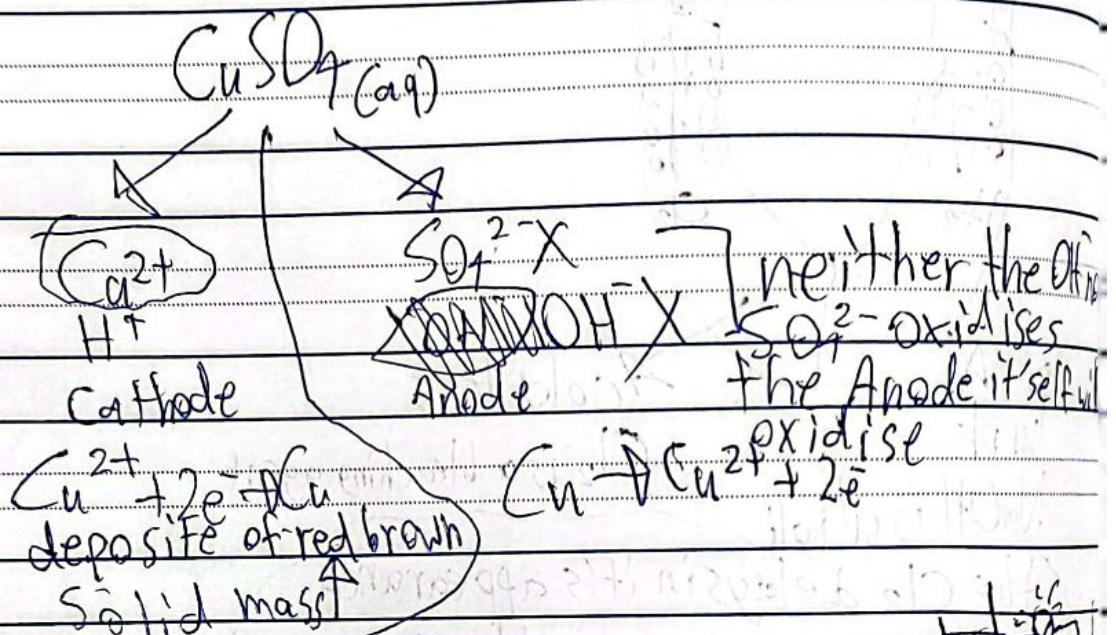 CuSO4(aq)
Cu2+
H+
Cathode
Cu2+ + 2e- → Cu
deposite of red brown
solid mass ↑
SO4 2- X
OH- X
Anode
neither the
SO4 2- oxidises
the Anode it'self
oxidise
Cu → Cu2+ + 2e-